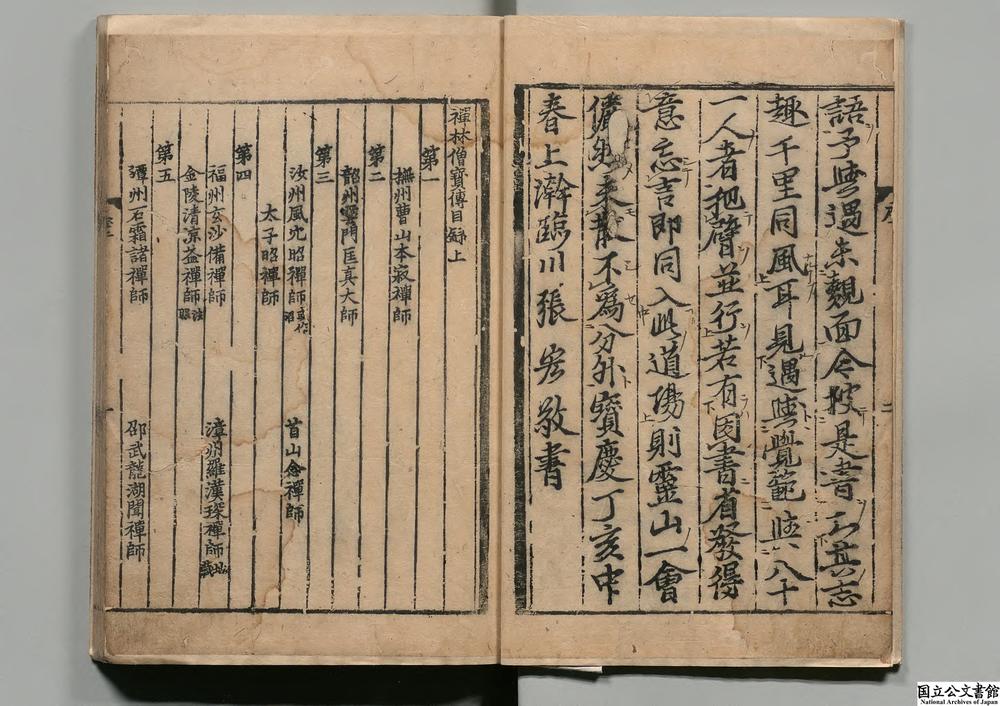 語予與遇未覿面今披是書知其志
趣千里同風耳見遇與覺範與八十
一人者把臂並行若有因書省發得
意忘言即同入此道場則靈山一會
儼然未散不爲分外寶慶丁亥中
春上澣臨川張宏敬書
序
二
禪林僧寶傳目錄上
第一
撫州曹山本寂禪師
第二
韶州雲門匡真大師
第三
汝州風穴昭禪師
首山念禪師
太子昭禪師
第四
福州玄沙備禪師
漳州羅漢琛禪師
金陵清凉益禪師
第五
潭州石霜諸禪師
邵武龍湖聞禪師
国立公文書館
National Archives of Japan